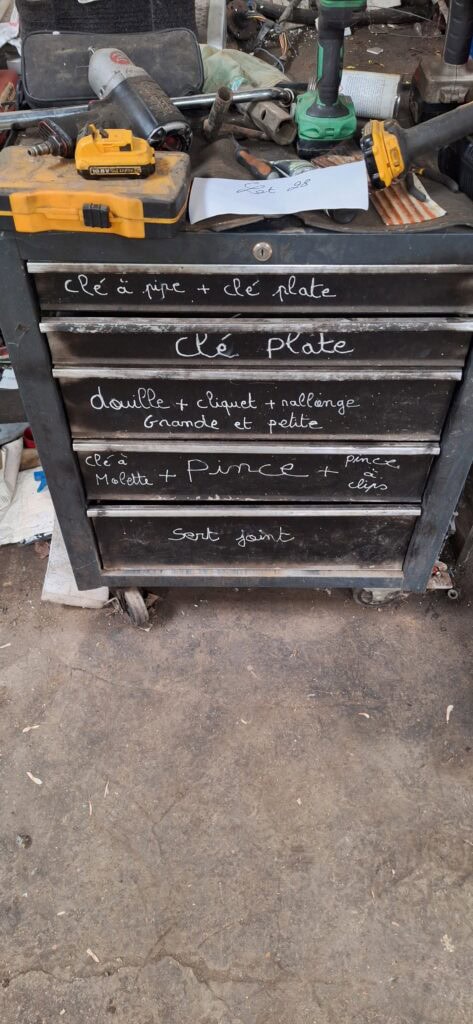 10.8V
Lot 98
clé à pipe + clé plate
clé plate
douille + cliquet + rallonge
Grande et petite
clé à
Molette + Pince + pince
à
clips
Sert joint